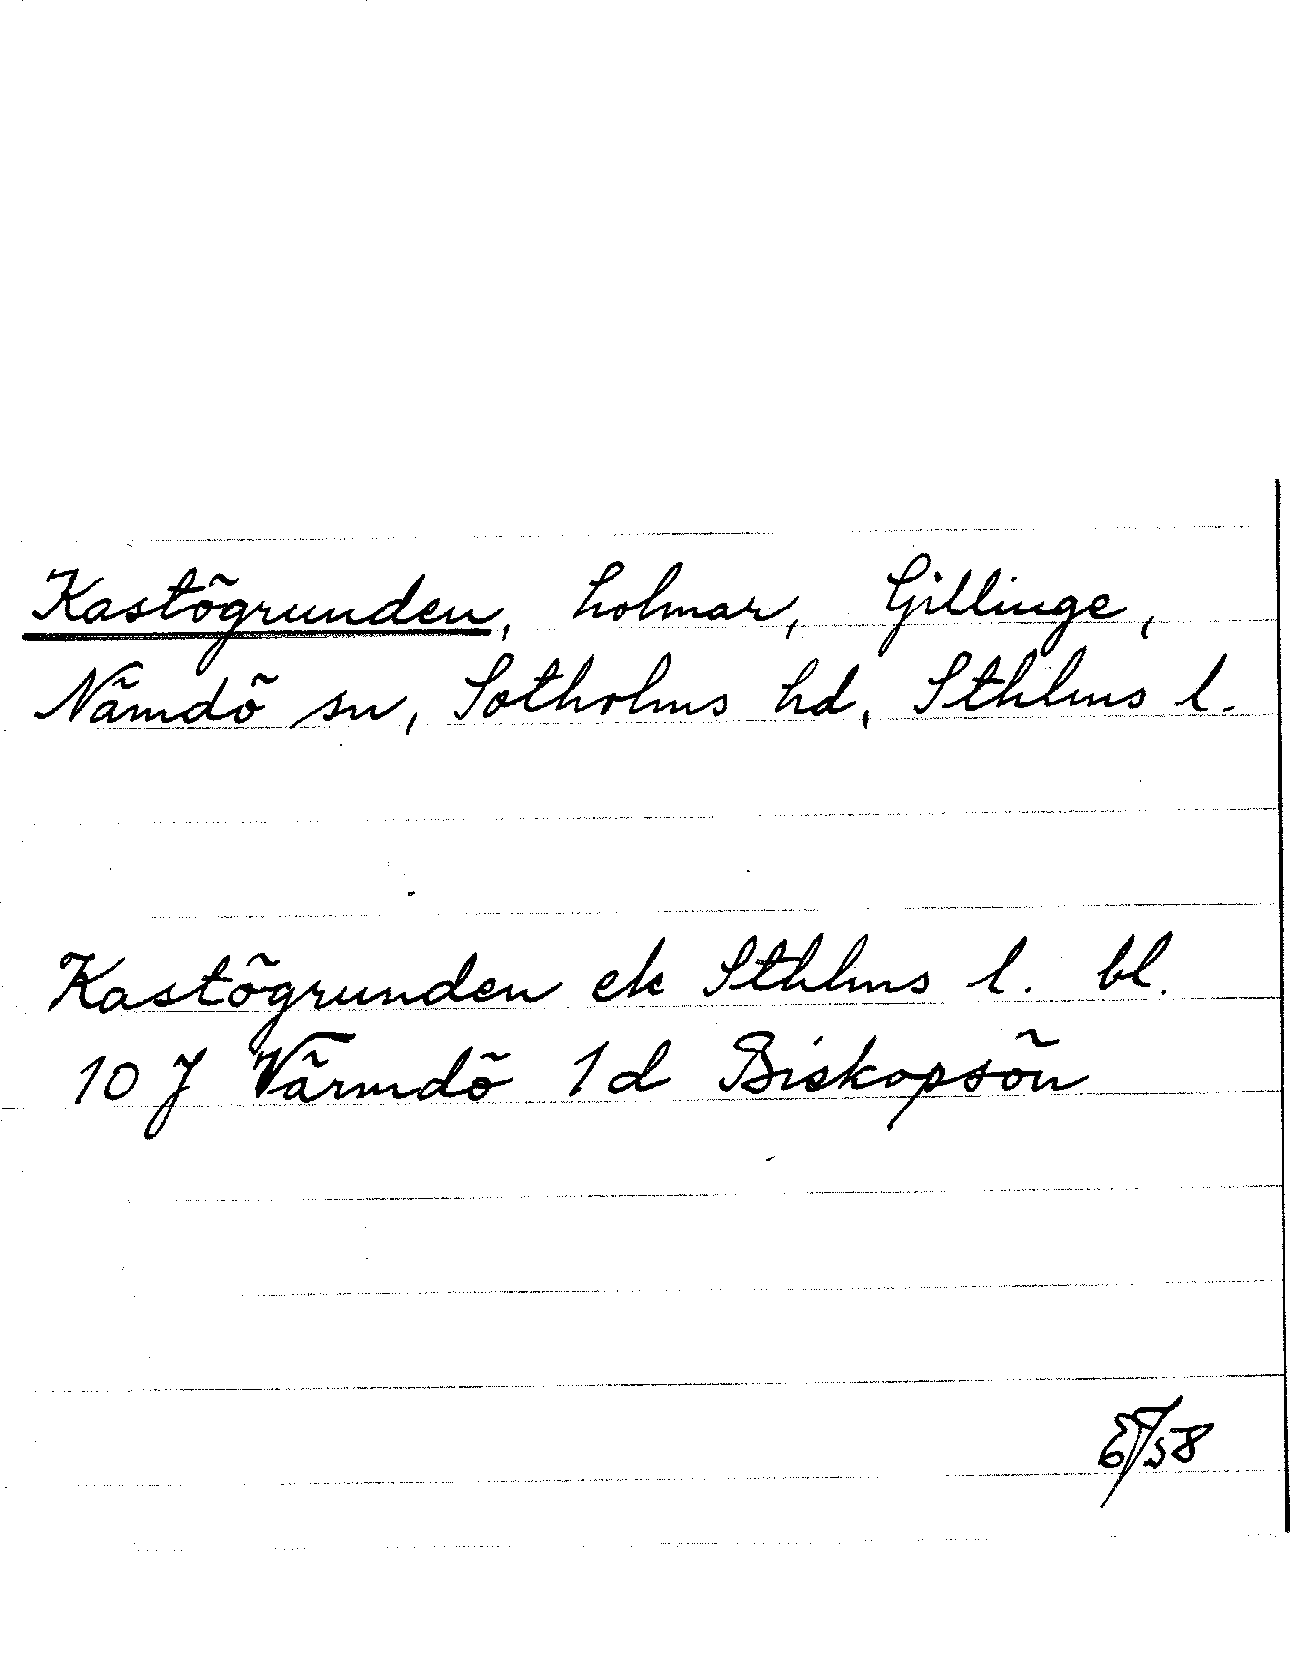 Kastögrunden, holmar, Gillinge,
Nämdö sn, Sotholms hd, Sthlms l.
Kastögrunden ek Sthlms l. bl.
10 J Värmdö 1d Biskopsön